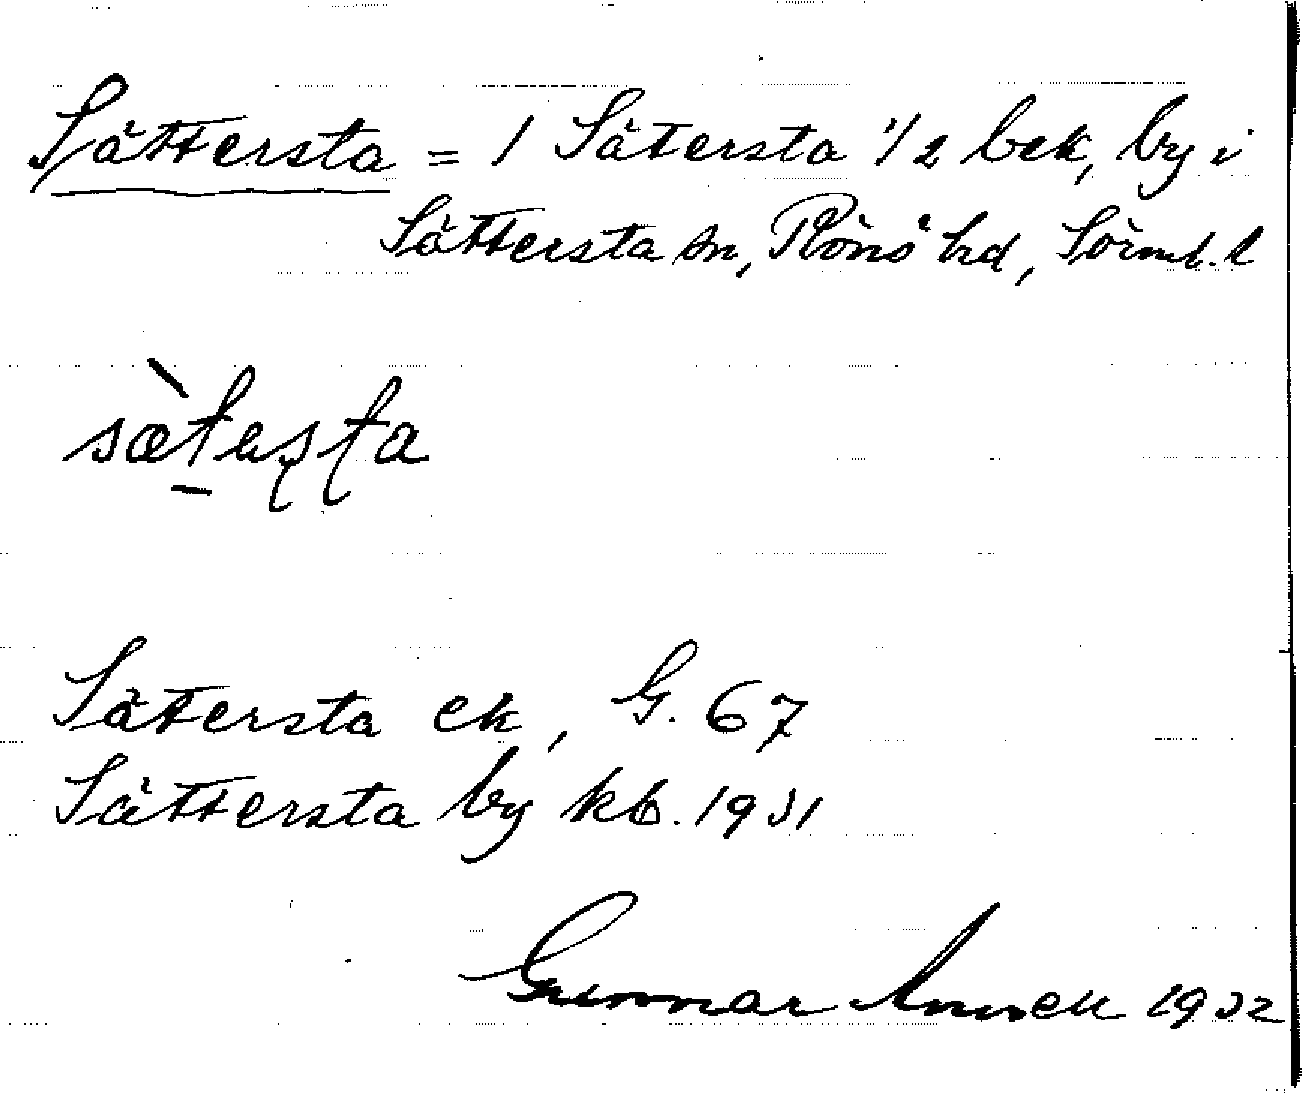 Sättersta = 1 Sätersta 1/2 bek, by i
Sättersta sn, Rönö hd, Sörml. l
Sätersta ek, G. 67
Sättersta by kb. 1931
Gunnar 1932